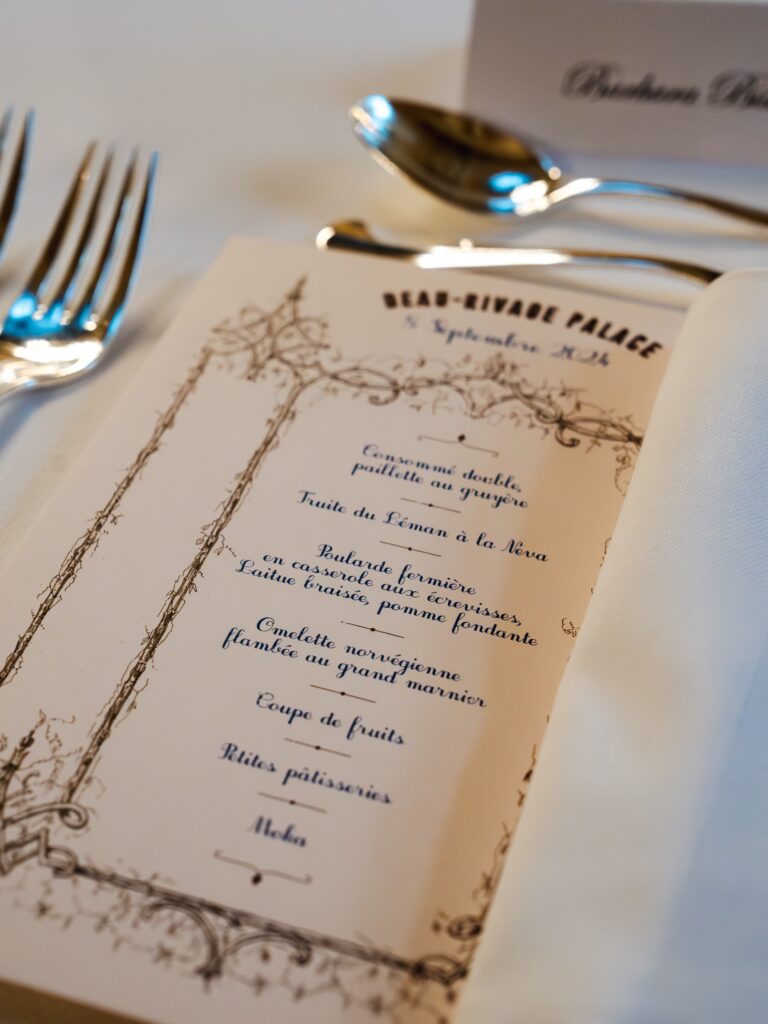 BEAU-RIVAGE PALACE
8 Septembre 2024
Consommé double,
paillette au gruyère
Truite du Léman à la Neva
Poularde fermière
en casserole aux écrevisses,
Laitue braisée, pomme fondante
Omelette norvégienne
flambée au grand marnier
Coupe de fruits
Petites pâtisseries
Moka